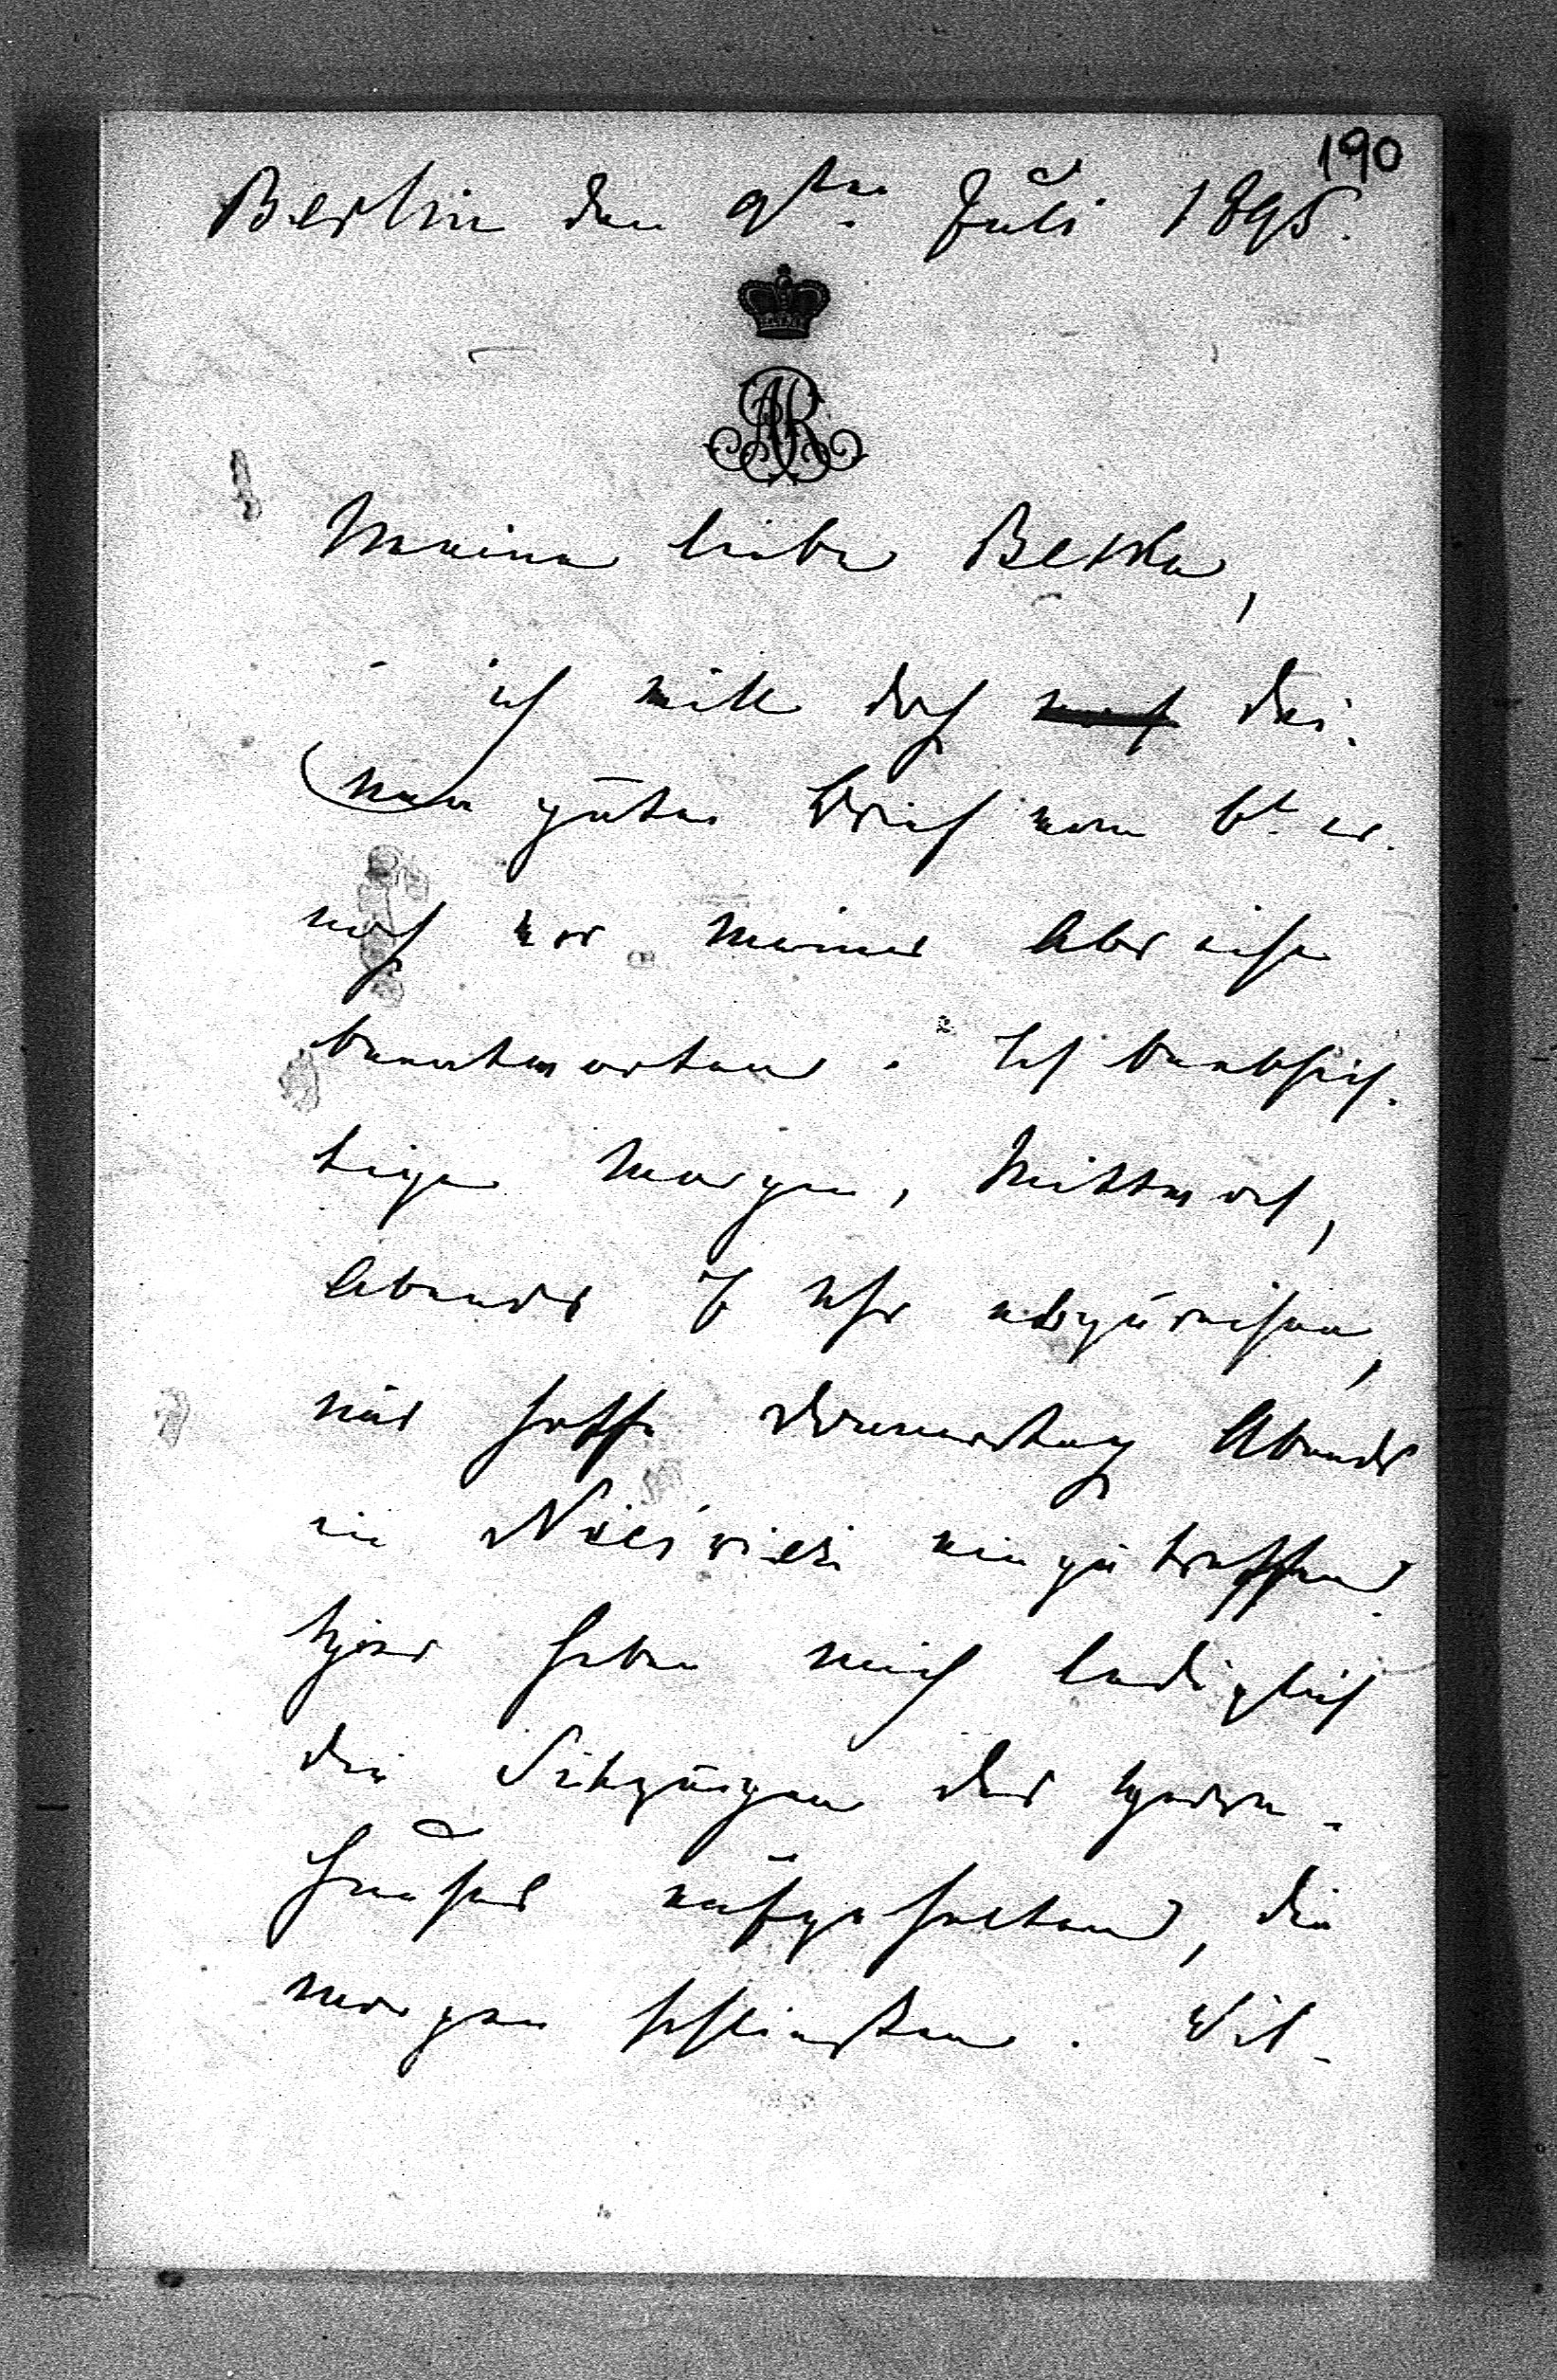 190
Berlin den 9ten Juli 1895.
AR
Meine liebe Betka,
ich will doch noch Dei-
nen guten Brief vom 6t er.
noch vor meiner Abreise
beantworten. Ich beabsich-
tige morgen, Mittwoch,
Abends 7 Uhr abzureisen,
und hoffe Donnerstag Abends
in Nieśwież einzutreffen.
Hier haben mich lediglich
die Sitzungen des Herren-
hauses aufgehalten, die
morgen schließen.